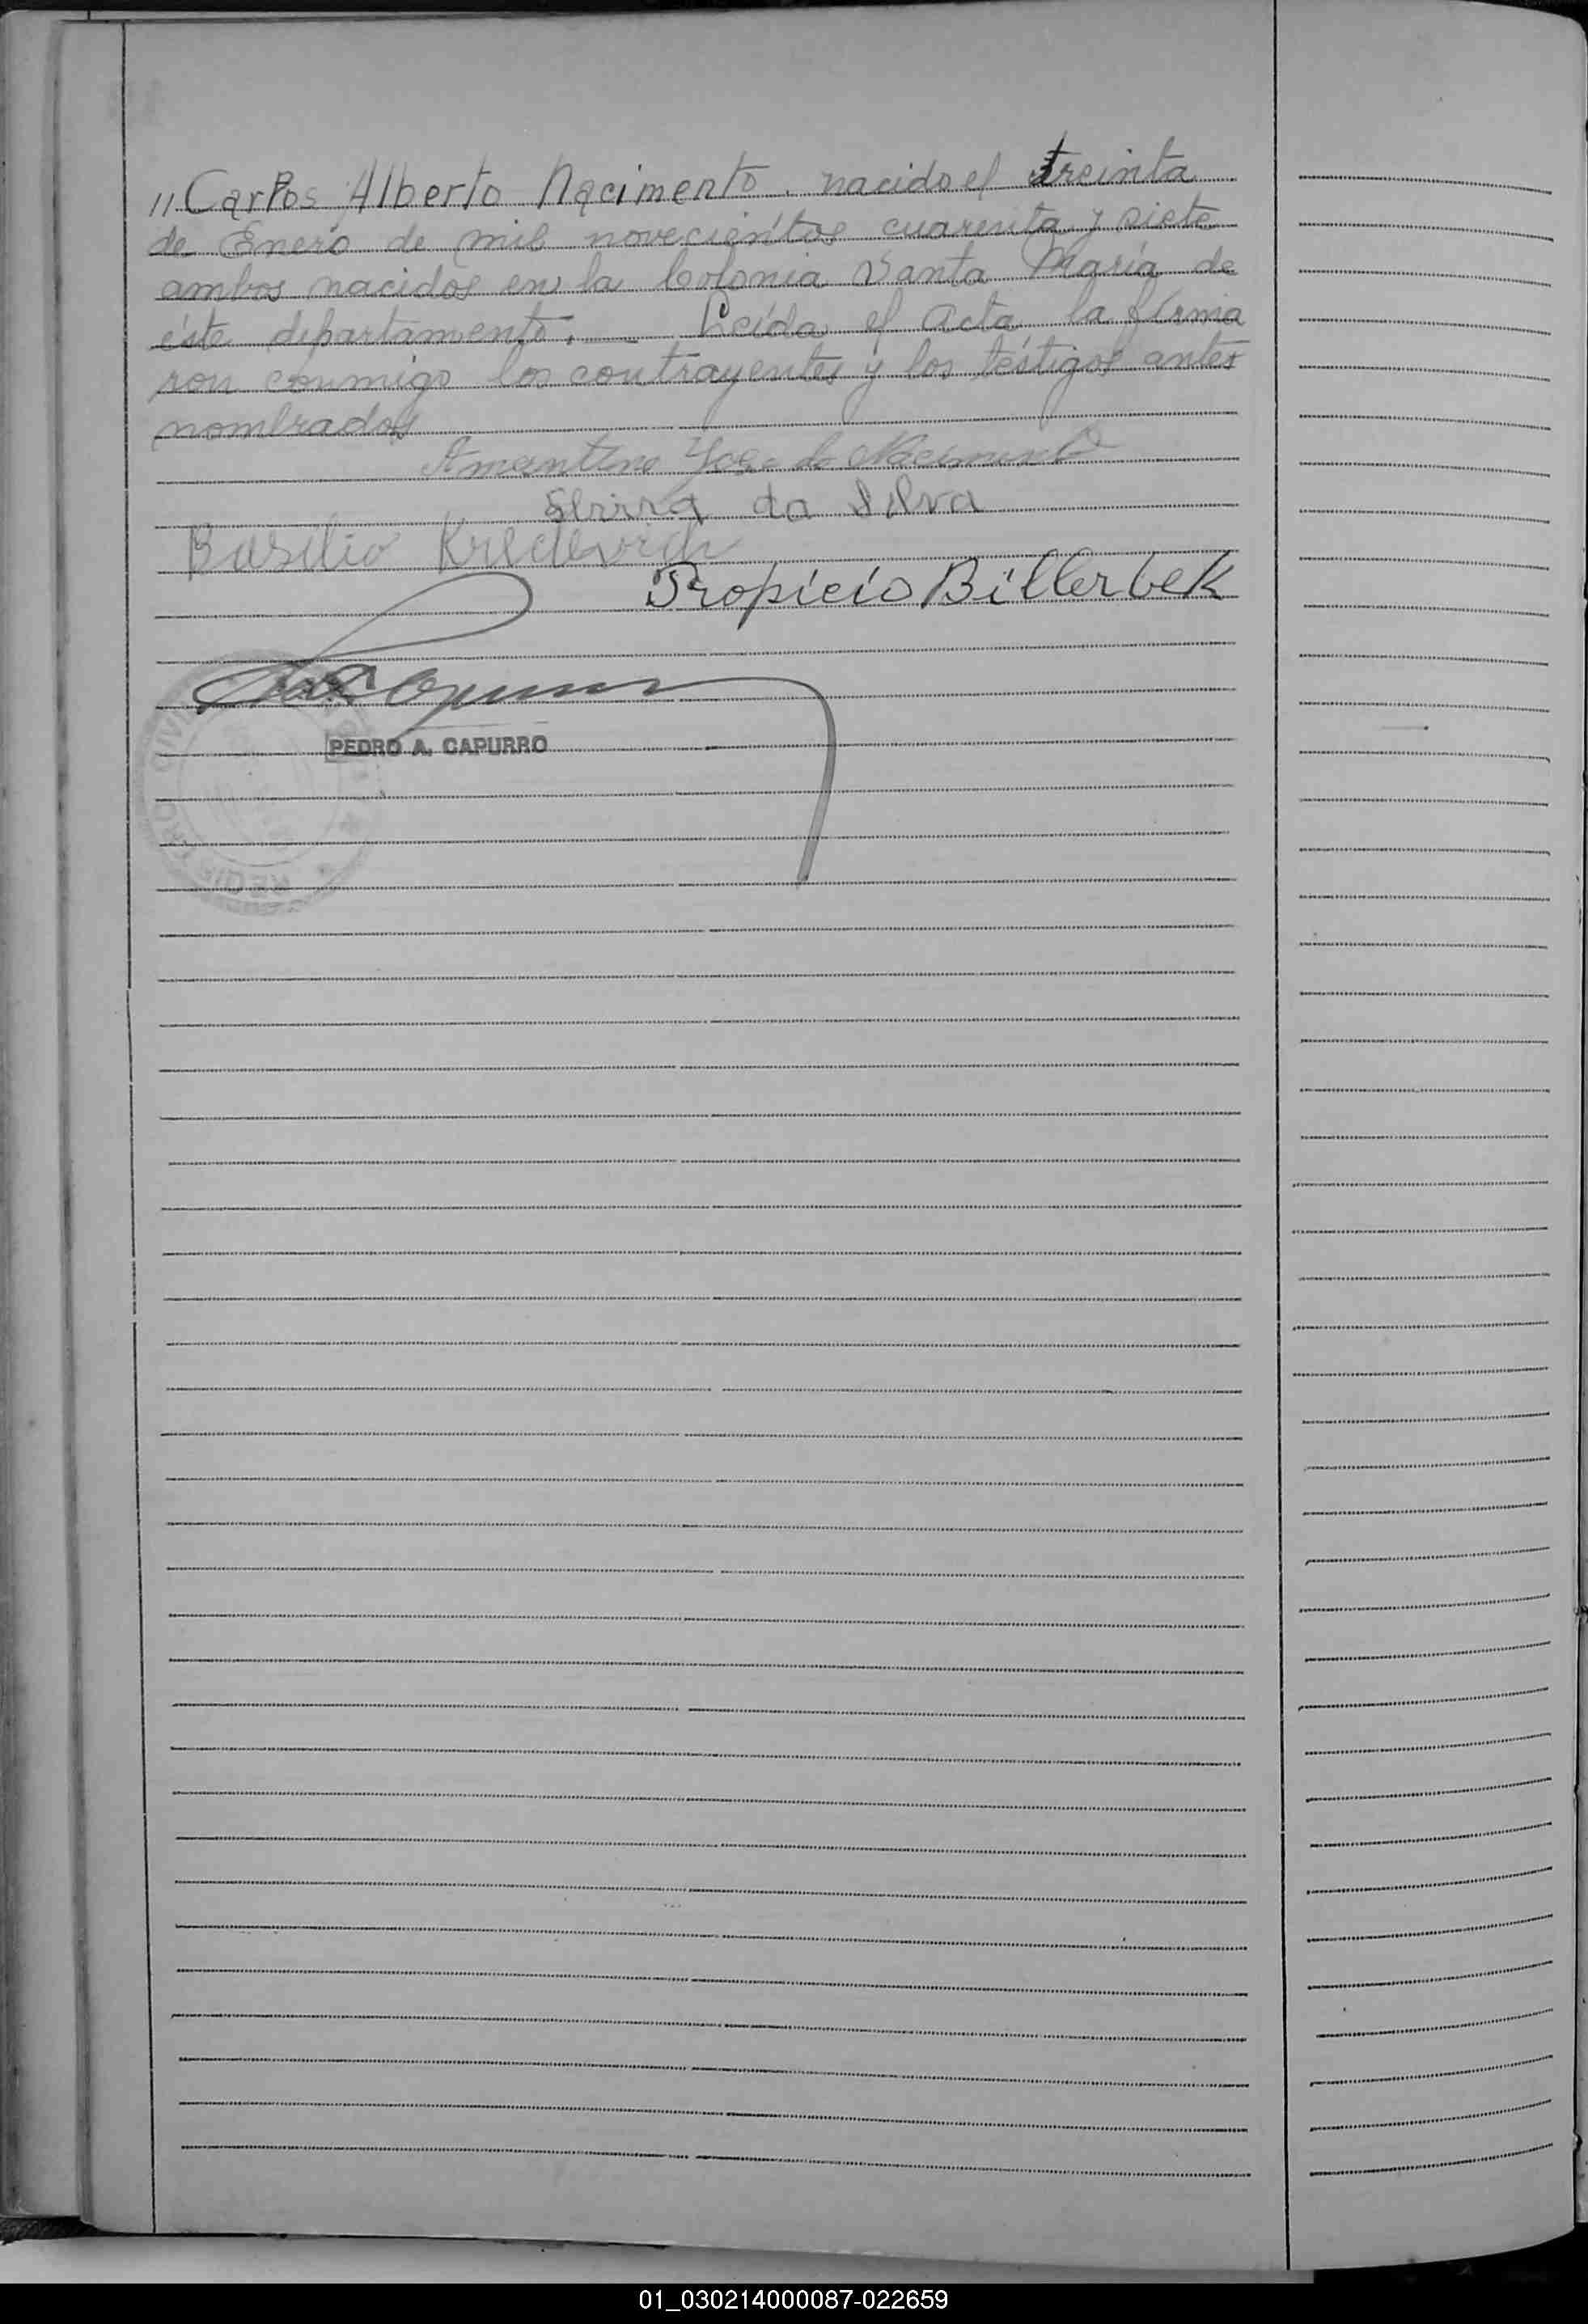 "Carlos Alberto Nacimento. nacido el treinta
de Enero de mil novecientos cuarenta y siete
ambos nacidos en la Colonia Santa María de
éste departamento. — Leída el acta la firma
ron conmigo los contrayentes y los testigos antes
nombrados
Amantino Jose do Nacimento
da Silva
Basilio
Propicio Billerbek
PEDRO A. CAPURRO
01_030214000087-022659